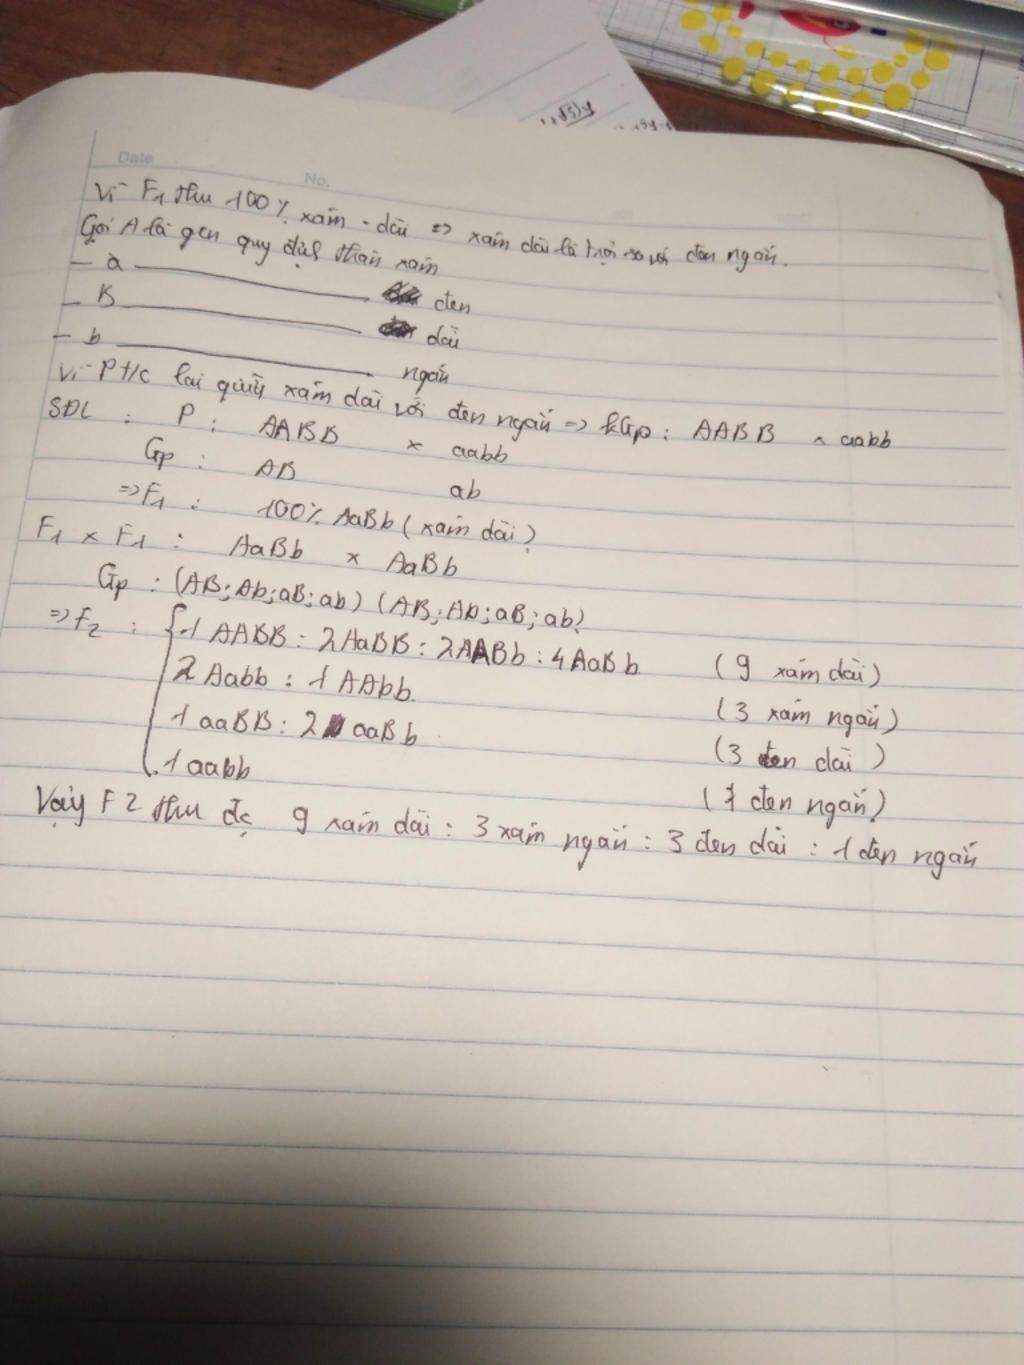 √3)y
Date
No.
Vì F₁ thu 100% xám - dài => xám dài là trội so với đen ngắn.
Gọi A là gen quy định thân xám
- a ——— đen
- B ——— dài
- b ——— ngắn
Vì P t/c lai giữa xám dài với đen ngắn => kGp : AABB × aabb
SĐL : P : AABB × aabb
Gp : AB ab
=> F₁ : 100% AaBb (xám dài)
F₁ × F₁ : AaBb × AaBb
Gp : (AB; Ab; aB; ab) (AB; Ab; aB; ab)
=> F₂ : 1 AABB : 2 AaBB : 2AABb : 4 AaBb (9 xám dài)
2 Aabb : 1 AAbb. (3 xám ngắn)
1 aaBB : 2 aaBb (3 đen dài)
1 aabb (1 đen ngắn)
Vậy F2 thu đc 9 xám dài : 3 xám ngắn : 3 đen dài : 1 đen ngắn